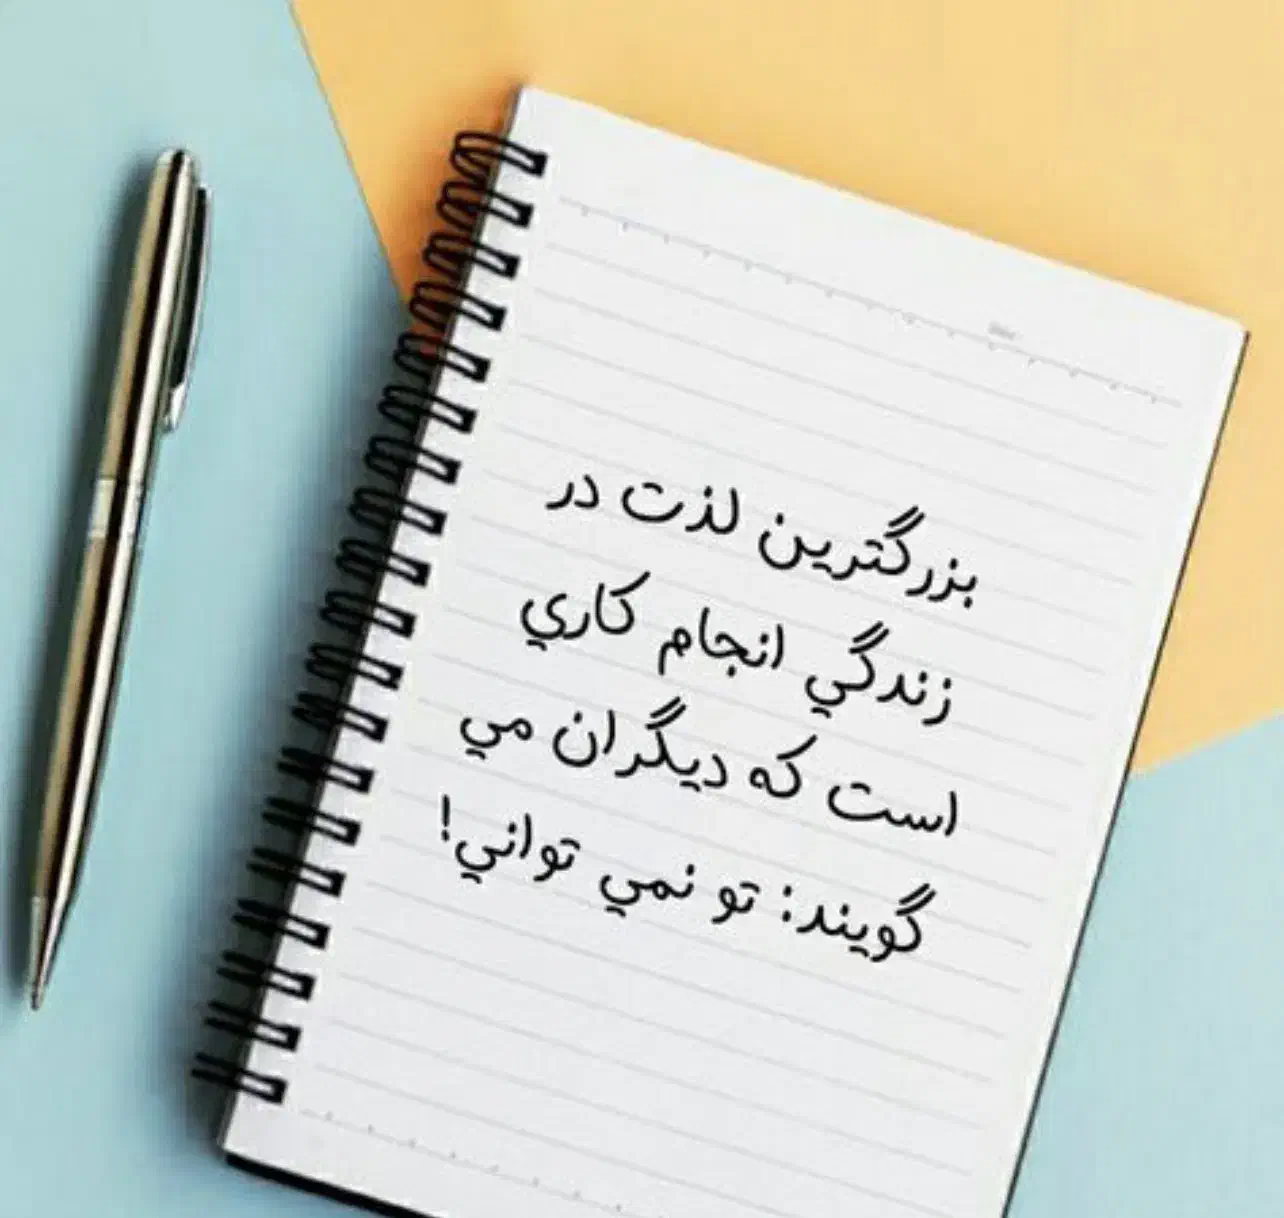 بزرگترین لذت در
زندگي انجام کاري
است که دیگران مي
گویند: تو نمي تواني!